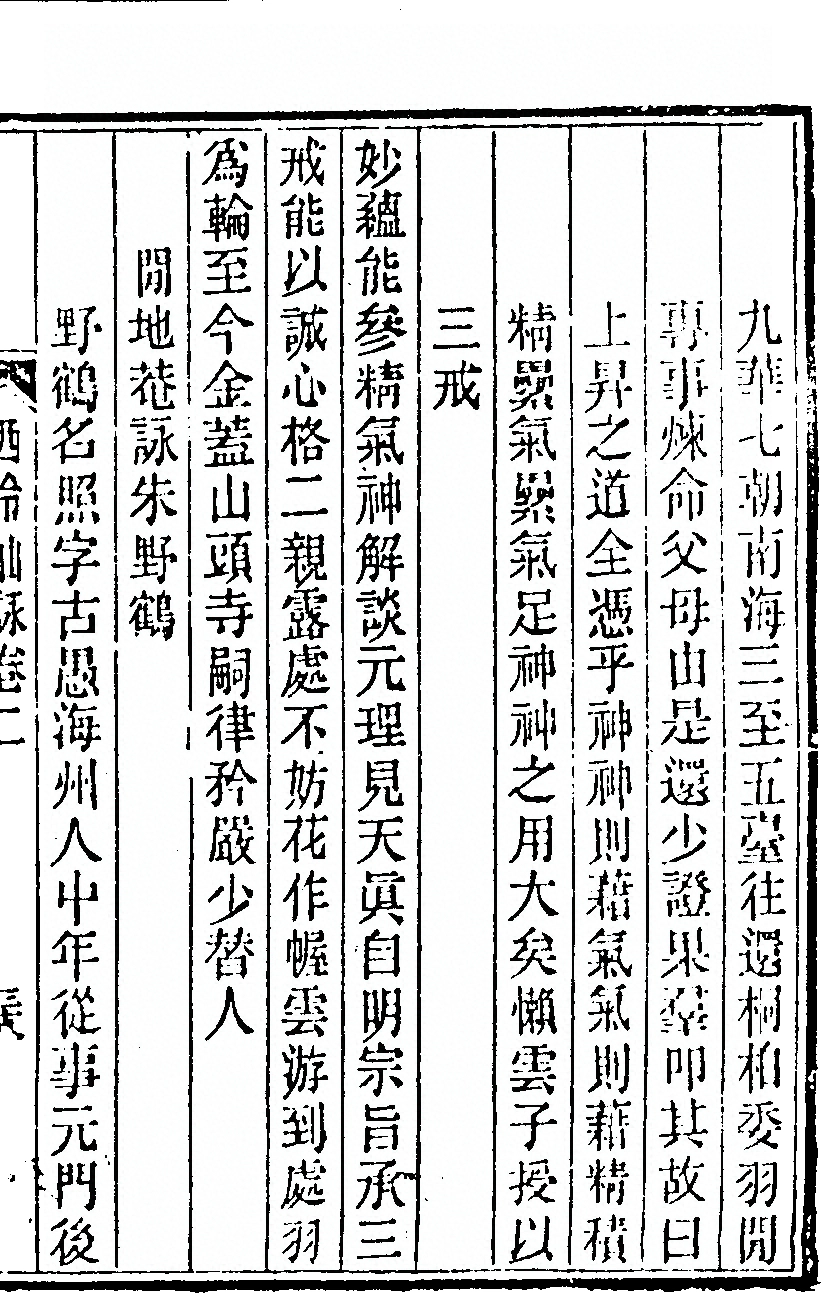 九華七朝南海三至五臺往還桐柏委羽閒
專事煉命父母由是還少證果羣叩其故曰
上昇之道全憑乎神神則藉氣氣則藉精積
精累氣累氣足神神之用大矣懶雲子授以
三戒
妙蘊能參精氣神解談元理見天眞自明宗旨承三
戒能以誠心格二親露處不妨花作幄雲游到處羽
為輪至今金蓋山頭寺嗣律矜嚴少替人
閒地菴詠朱野鶴
野鶴名照字古愚海州人中年從事元門後
西泠仙詠卷二